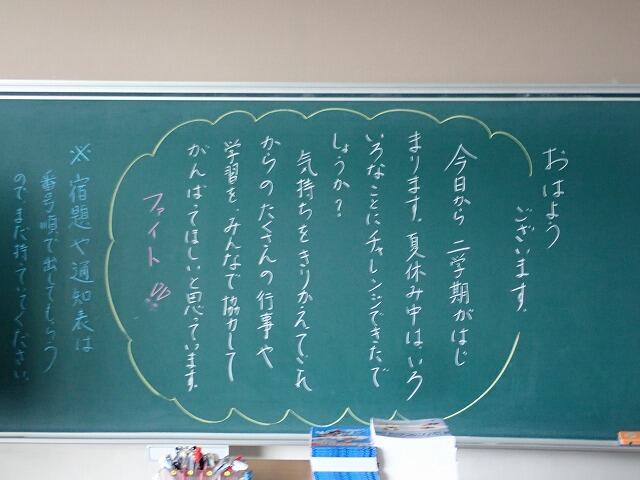 おはよう
ございます。
今日から二学期がはじ
まります。夏休み中はいろ
いろなことにチャレンジできたで
しょうか?
気持ちをきりかえてこれ
からのたくさんの行事や
学習を、みんなで協力して
がんばてほしいと思っています。
ファイト
※宿題や通知表は
番号順で出してもらう
のでまだ持っててください。